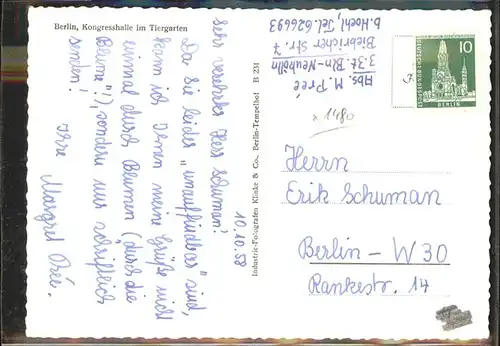 Berlin, Kongresshalle im Tiergarten
10.10.58
Sehr verehrter Herr Schuman!
Da Sie leider "unauffindbar" sind,
kann ich Ihnen meine Grüße nicht
einmal durch Blumen ("durch die
Blume"!), sondern nur schriftlich
senden!
Ihre
Margret Prée.
Industrie-Fotografen Klinke & Co., Berlin-Tempelhof B 231
Abs. M. Prée
z.Zt. Bln-Neukölln
Biebricher Str. 7
b. Hoehl, Tel. 626693
DEUTSCHE BUNDESPOST
10
BERLIN
x 1480
Herrn
Erik Schuman
Berlin - W 30
Rankestr. 14